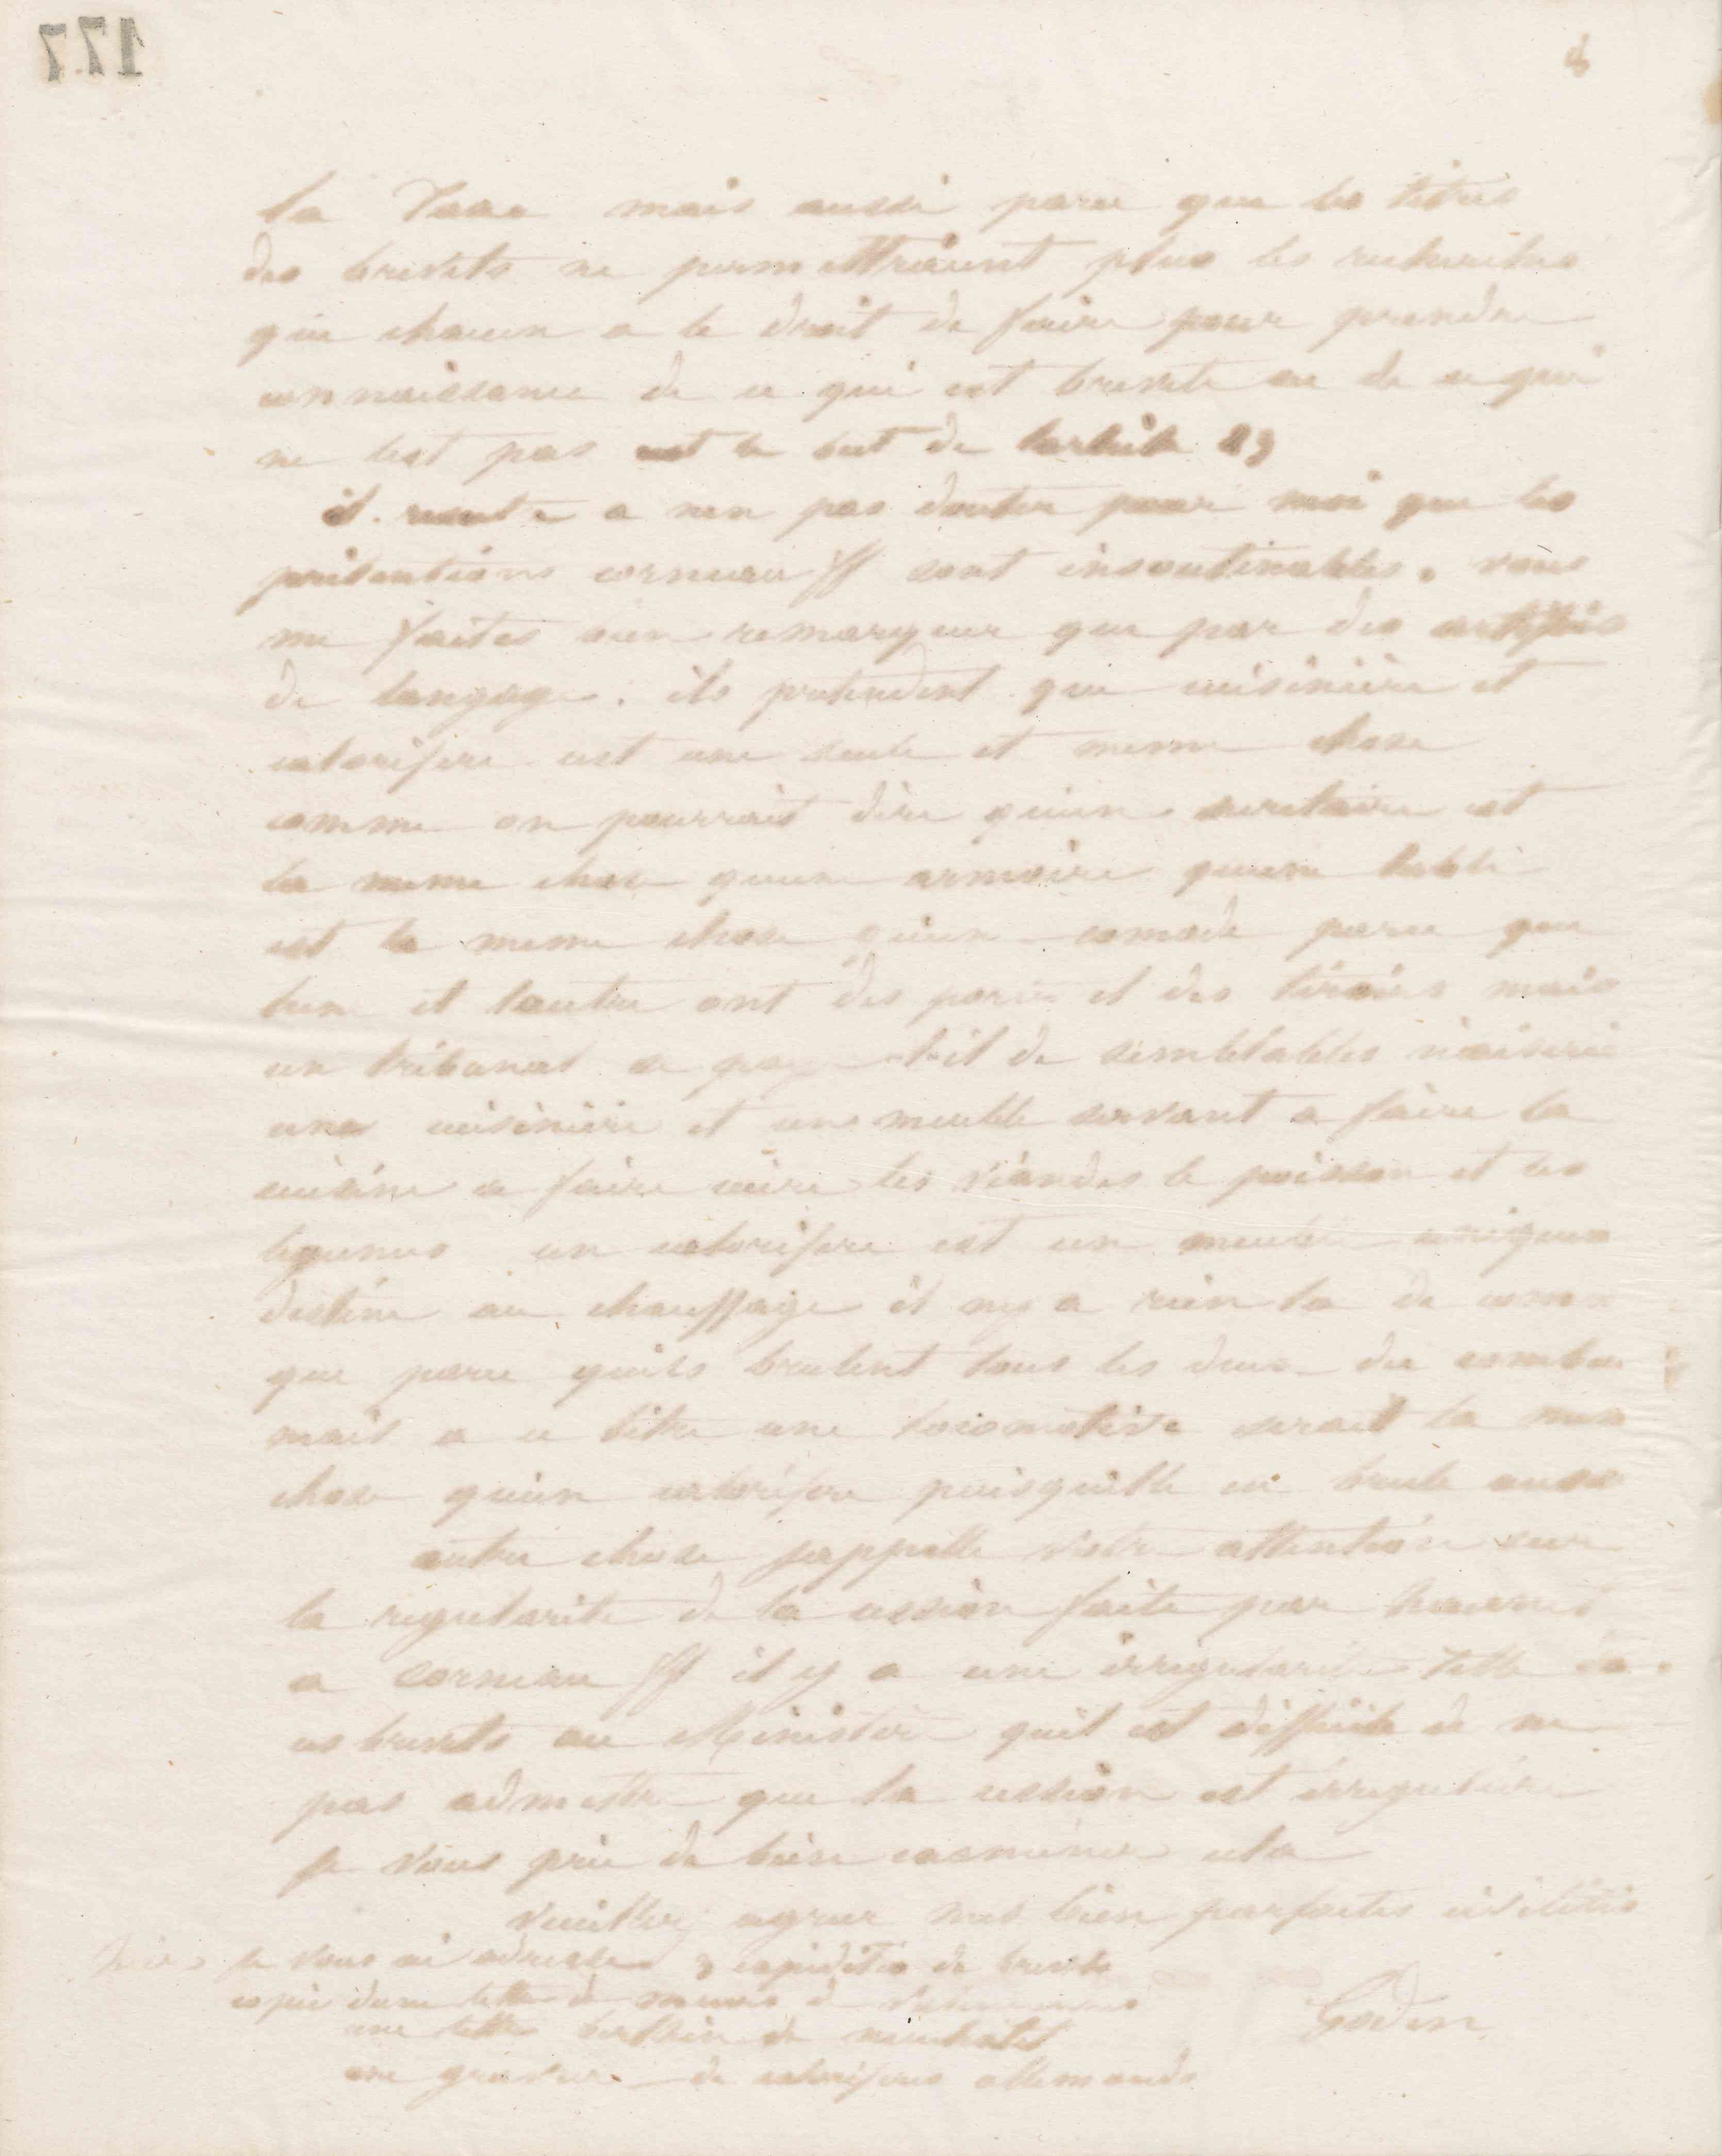 177
la Taxe mais aussi parce que les titres
des brevets ne permettraient plus les recherches
que chacun a le droit de faire pour prendre
connaissance de ce qui est breveté ou de ce qui
ne lest pas est le but de larticle 23
il reste a nen pas douter pour moi que les
prétentions corneau ff sont insoutenables. vous
me faites bien remarquer que par des artifices
de langage. ils pretendent que cuisinière et
calorifere est une seule et meme chose
comme on pourrait dire quun secretaire est
la meme chose quune armoire quune table
est la meme chose quun comode parce que
lun et lautre ont des portes et des tiroirs mais
un tribunal se paye t-il de semblables niaiseries
une cuisinière et une meuble servant a faire la
cuisine a faire cuire les viandes le poisson et les
legumes un calorifere est un meuble unique
destine au chauffage il ny a rien la de comm
que parce quils brulent tous les deux du combus
mais a ce titre une locomotive serait la mem
chose quun calorifere puisquelle en brule aussi
autre chose jappelle votre attention sur
la regularite de la cession faite par
a corneau ff il y a une irregularite telle da
ces brevets au Ministère quil est difficile de ne
pas admettre que la cession est irreguliere
je vous prie de bien examiner cela
veuillez agreer mes bien parfaites civilités
je vous ai adresse 3 expeditio de brevets
copie dune lettre de
une lettre de neuchatel
une gravure de caloriferes allemands
Godin